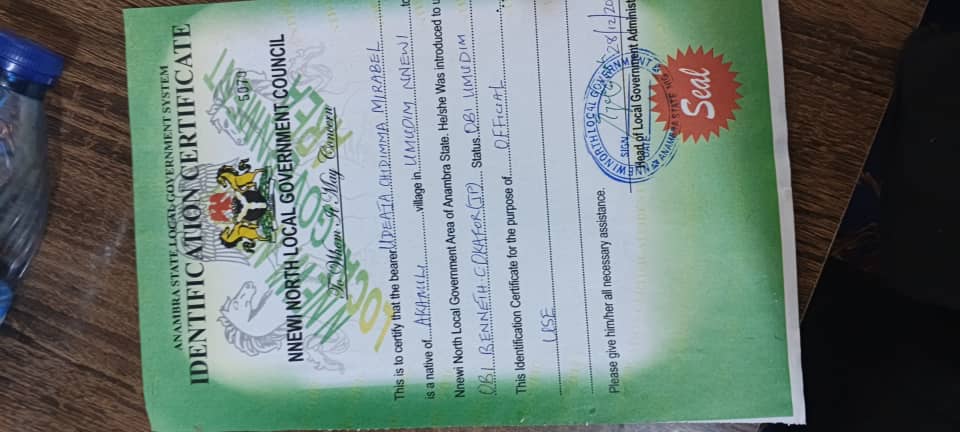 ANAMBRA STATE LOCAL GOVERNMENT SYSTEM
IDENTIFICATION CERTIFICATE
5079
NNEWI NORTH LOCAL GOVERNMENT COUNCIL
To Whom It May Concern
This is to certify that the bearer UDEAJA CHIDIMMA MIRABEL
is a native of AKAMILI village in UMUDIM NNEWI
Nnewi North Local Government Area of Anambra State. He/she Was introduced to
OBI BENNETH COKAFOR (JP) Status OBI UMUDIM
This Identification Certificate for the purpose of OFFICIAL
USE
Please give him/her all necessary assistance.
SIGN 28/12/20
Head of Local Government Administ
Seal